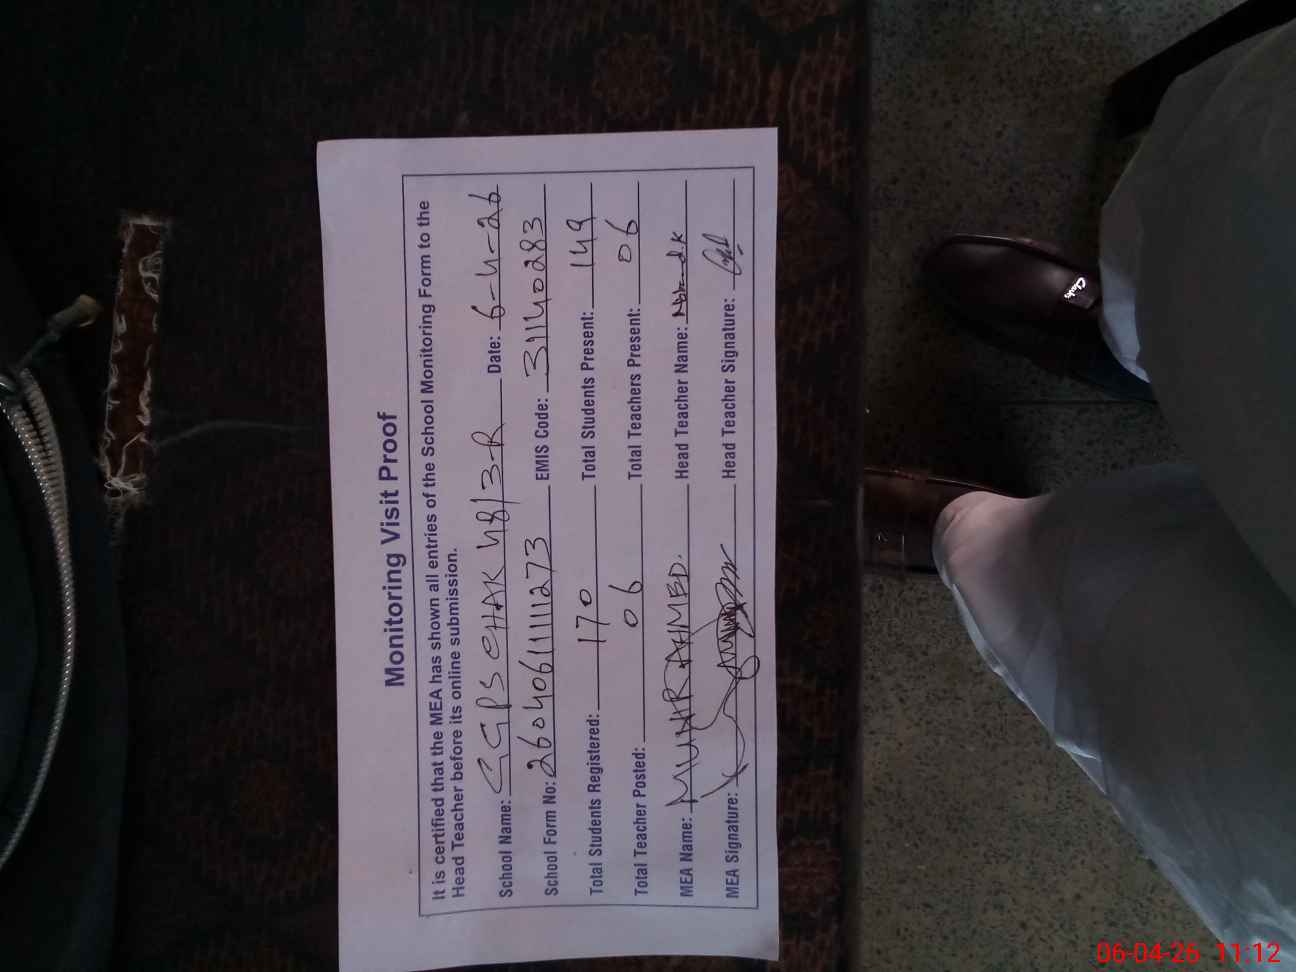 Monitoring Visit Proof
It is certified that the MEA has shown all entries of the School Monitoring Form to the
Head Teacher before its online submission.
School Name: GGPS CHAK 48/3-R Date: 6-4-26
School Form No: 26040611111273 EMIS Code: 31140283
Total Students Registered: 170 Total Students Present: 149
Total Teacher Posted: 06 Total Teachers Present: 06
MEA Name: MUNIR AHMED. Head Teacher Name:
MEA Signature: Head Teacher Signature:
Clarks
06-04-26 11:12